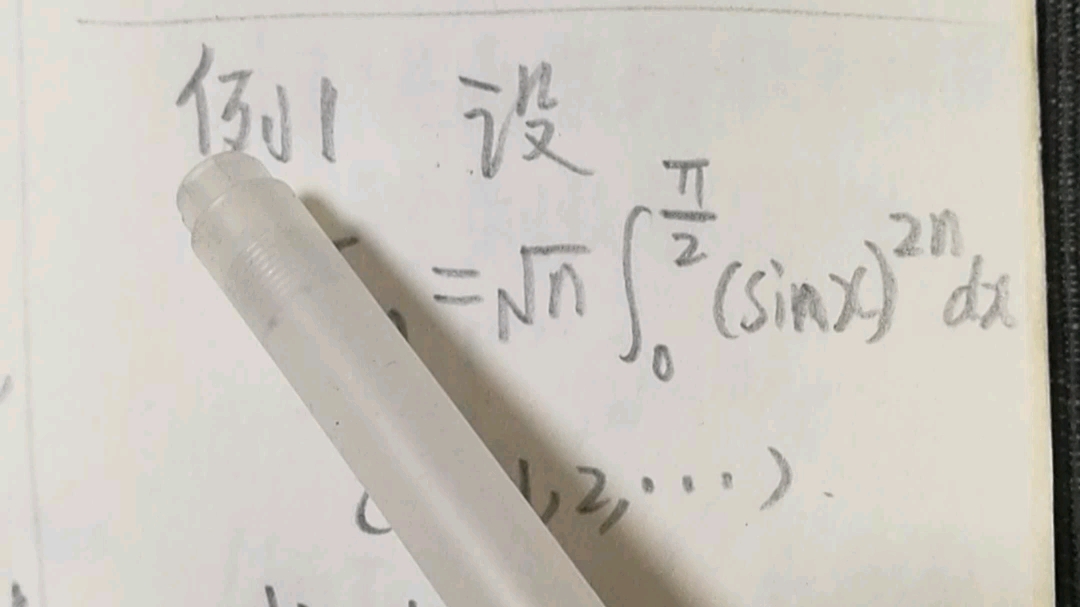 例1 设
= √n ∫₀^(π/2) (sinx)^(2n) dx
( 1,2,···).